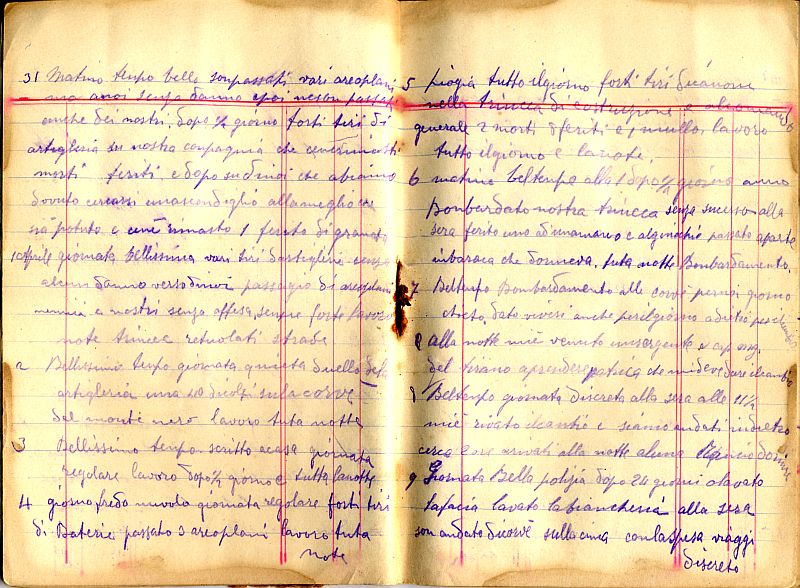 31 Matino tempo bello son passati vari areoplani
ma anoi senza danno epoi nesun passati
anche dei nostri, dopo ½ giorno forti tiri di
artiglieria sui nostra conpagnia che
morti feriti e dopo su dinoi che abiamo
dovuto cercarsi unascondiglio allameglio che
sia potuto e cuné rimasto 1 ferito di granata
1 Aprile giornata bellissima vari tiri dartiglieria senza
alcun danno verso dinoi passagio di areoplani
nemici e nostri senza offesa, sempre forte lavoro
note trincee reticolati strade
2 Bellissimo tempo giornata quieta duello della
artiglieria una 40 dicolpi sula corve
del monte nero lavoro tuta notte
3 Bellissimo tempo. scritto acasa giornata
regolare lavoro dopo ½ giorno e tutta lanotte
4 giorno fredo nuvolo giornata regolare forti tiri
di Baterie passato 3 areoplani lavoro tuta
note
5 piogia tutto ilgiorno forti tiri dicanone
nella trincea di costruzione e
generale 2 morti 3 feriti e 1 mullo, lavoro
tutto ilgiorno e lanote.
6 matino beltempo alla 1 dopo ½ giorno anno
Bonbardato nostra trincea senza sucesso alla
sera ferito uno dinamano e alginochio passato aparte
inbaraca che dormeva, tuta notte Bonbardamento.
7 Beltempo Bonbardamento alle corvé permezi giorno
dato viveri anche perilgiorno adietro perche
8 alla notte mié venuto unsergente e cap mag.
del tirano aprendere che mideve dare ilcambio
8 Beltempo giornata discreta alla sera alle 11½
mié rivato ilcambio e siamo andati indietro
circa 2 ore arivati alla notte aluna dormire
9 Giornata Bella pulizia dopo 24 giorni olavato
lafacia lavato labiancheria alla sera
son andato dicorvé sullacima conlaspesa viaggi
discreto